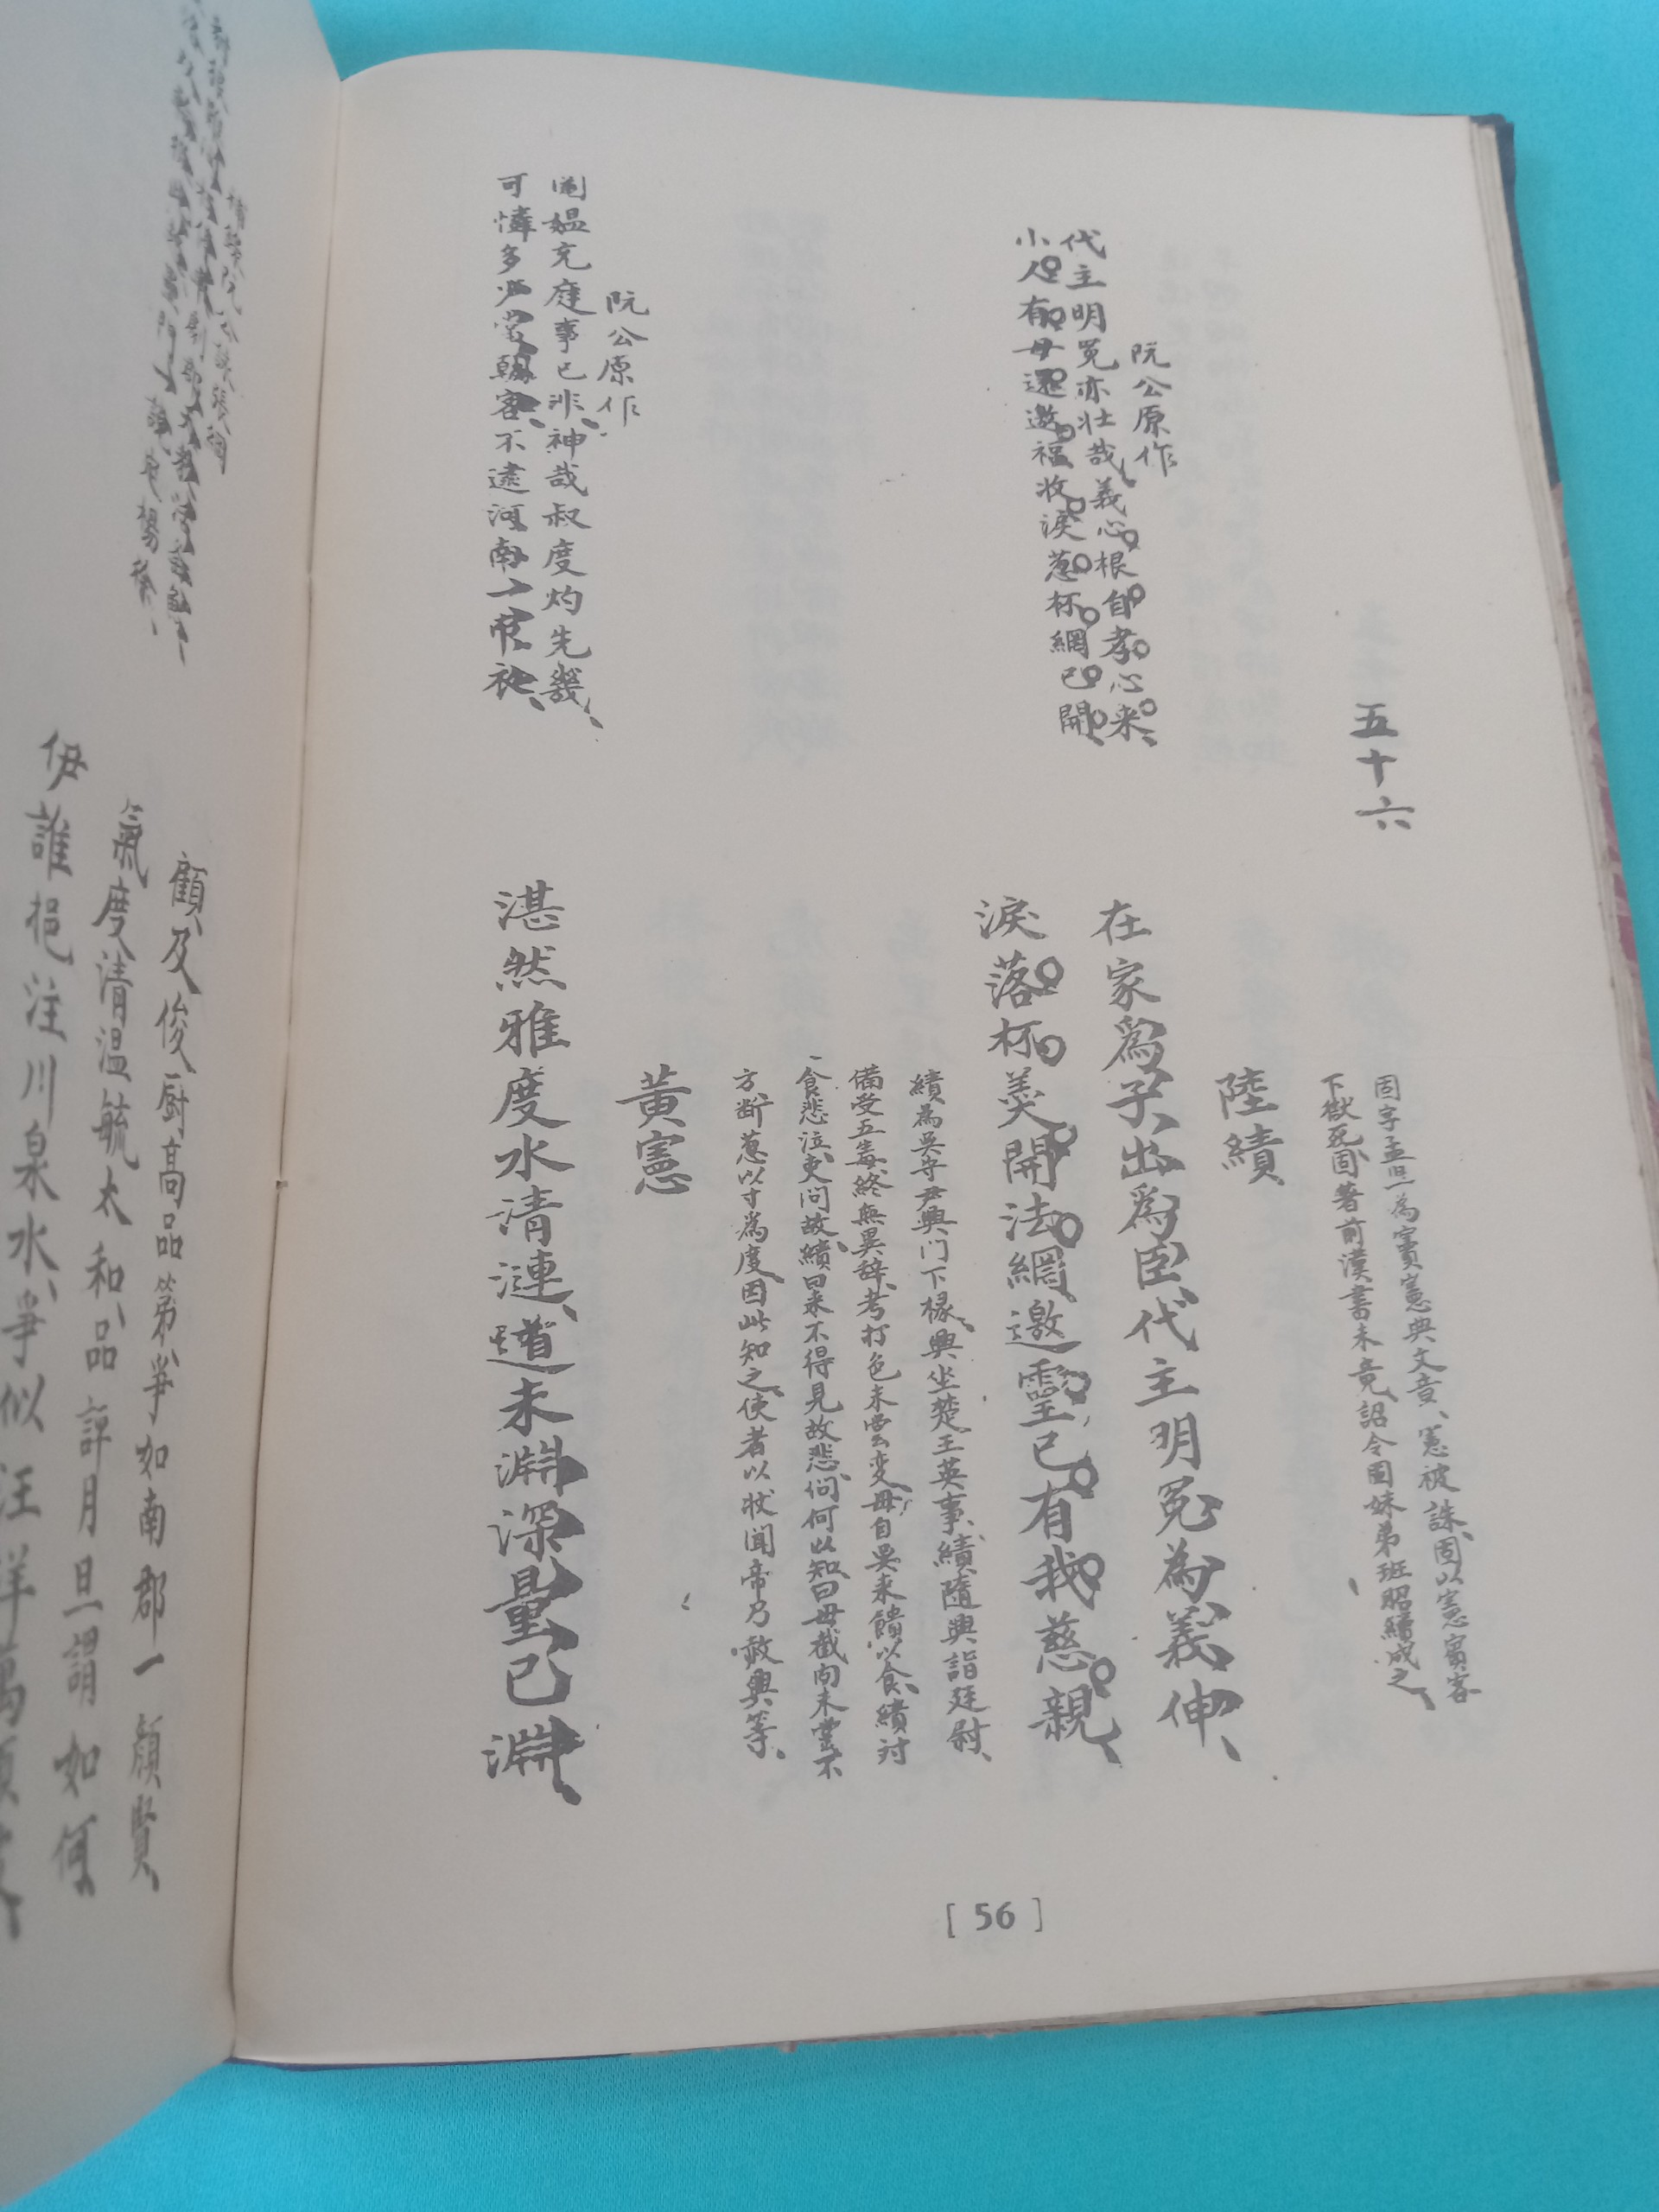 五十六
固字孟坚為竇憲典文章憲被誅固以憲賓客
下獄死固著前漢書未竟詔令固妹弟班昭續成之
陸績
在家爲子出爲臣代主明冤為義伸
淚落杯羮開法網邀靈已有我慈親
績為吳守尹興门下椽興坐楚王英事績隨興詣廷尉
備受五毒終無異辞考打色未雲变母自吳来饋以食績対
食悲泣吏问故績曰来不得見故悲问何以知曰母截肉未甞不
方断葱以寸爲度因此知之使者以狀闻帝乃赦興等
黃憲
湛然雅度水清漣道未淵深量已淵
阮公原作
代主明冤亦壮哉義心根自孝心来
小人有母還邀福收淚葱杯網已開
阮公原作
閹媪充庭事已非神哉叔度灼先幾
可憐多少當朝客不逮河南一布衣
[56]
顧及俊厨高品第爭如南郡一顏賢
氣度清温毓太和品評月旦謂如何
伊誰挹注川泉水爭似汪洋萬頃波